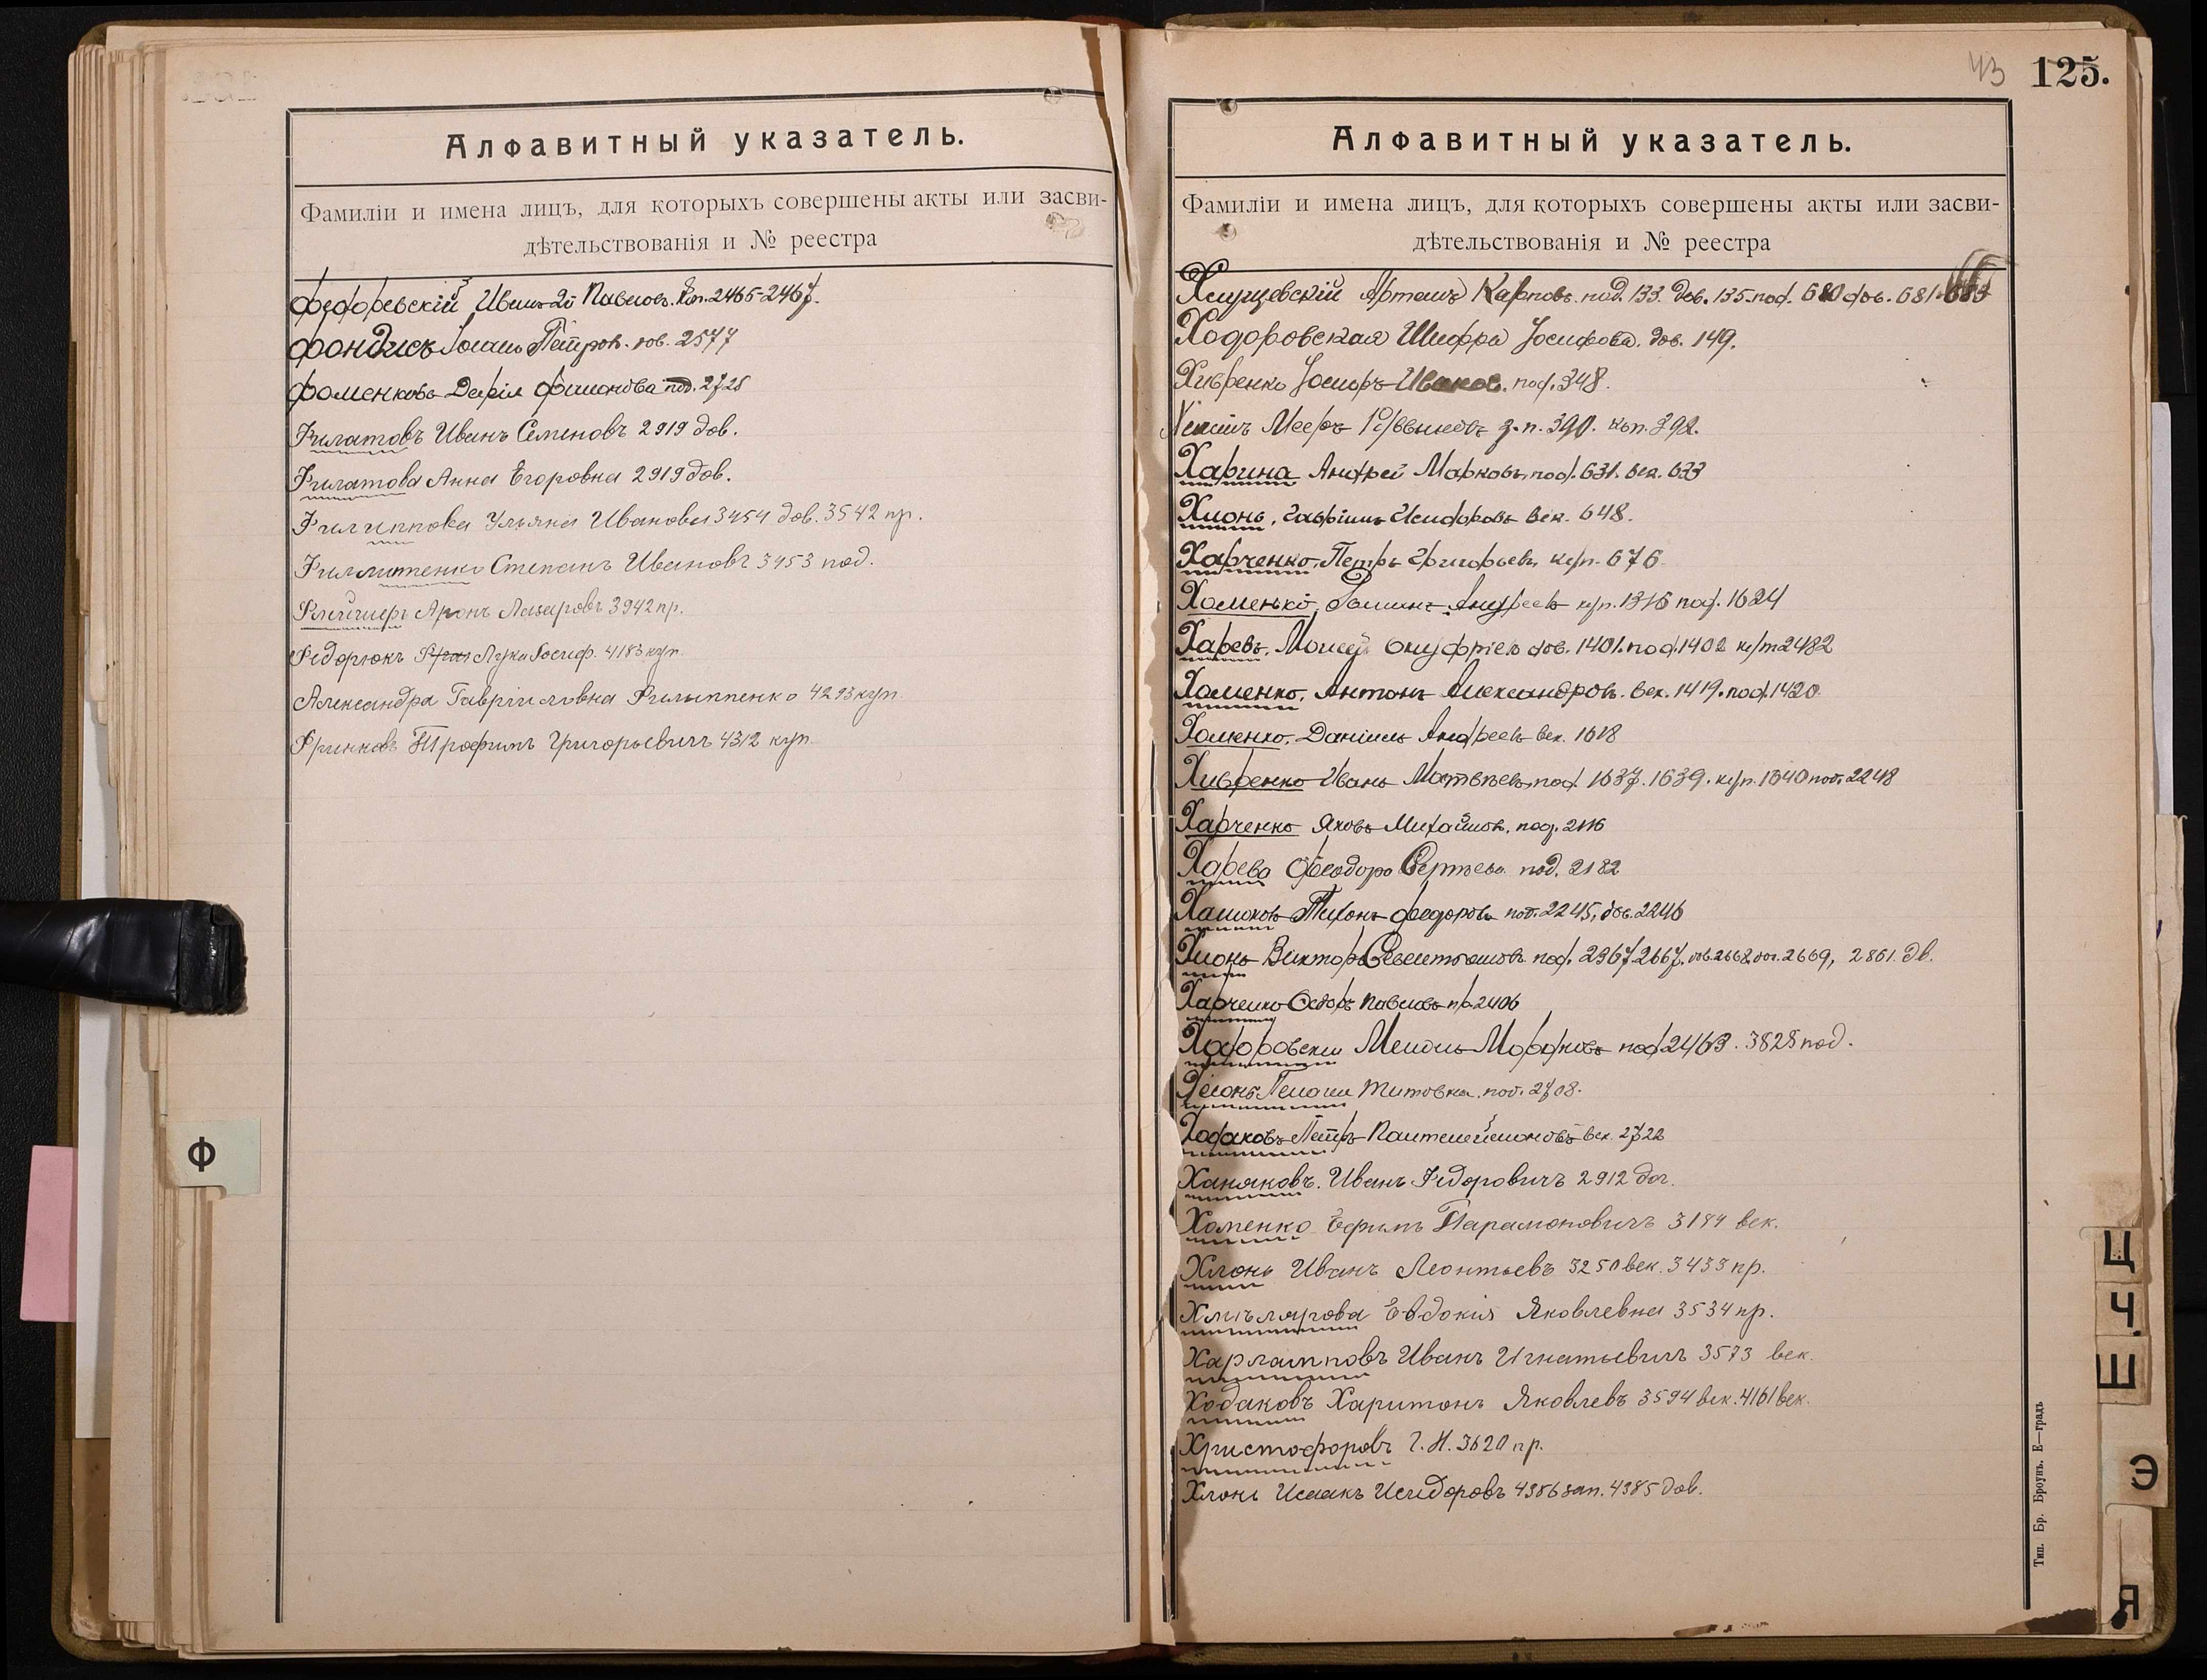 Алфавитный указатель.
Фамиліи и имена лицъ, для которыхъ совершены акты или засви-
дѣтельствованія и № реестра
Федоревскій Иванъ 2й Павловъ. 2465-2467.
Петров. дов. 2577
Фоменкова Дарія Филиппова под. 2725
Филатовъ Иванъ Семеновъ 2919 дов.
Филатова Анна Егоровна 2919 дов.
Филиппова Ульяна Иванова 3454 дов. 3542 пр.
Степанъ Ивановъ 3453 под.
Флейшеръ Аронъ Лазаровъ 3942 пр.
Федорюкъ Лука Іосиф. 4183 куп.
Александра Гавріиловна Филиппенко 4293 куп.
Фринковъ Трофимъ Григорьевичъ 4312 куп.
43 125.
Алфавитный указатель.
Фамиліи и имена лицъ, для которыхъ совершены акты или засви-
дѣтельствованія и № реестра
Артемъ Карповъ. под. 133. дов. 135. под. 680 дов. 681.
Ходоровская Шифра Іосифова. дов. 149.
Хивренко Іосифъ под. 348.
Мееръ з.п. 390. куп. 392.
Харина Андрей Марковъ, под. 631. век. 633
Хлонь, Гавріилъ Исидоровъ век. 648.
Харченко, Петръ Григорьевъ, куп. 676
Хоменко, Андреевъ куп. 1316 под. 1624
Харевъ. Моисей Онуфріев дов. 1401. под. 1402 куп 2482
Хоменко, Антонъ Александров. век. 1419. под. 1420
Хоменко, Даніилъ Андреевъ век. 1618
Хивренко Иванъ Матвѣевъ, под. 1637. 1639. куп. 1640 под. 2248
Харченко Яковъ Михайлов. под. 2116
Харева Феодора Сергѣева под. 2182
Тихонъ Феодоровъ под. 2245, дов. 2246
Хлонь Викторъ под. 2367. 2667. дов. 2668. дог. 2669, 2861. дв.
Харченко Федоръ Павловъ пр. 2406
Ходоровскій Мордковъ под 2463. 3828 под.
Хлонь Пелагія Титовна. под. 2708.
Ходаковъ Петръ Пантелеймоновъ век. 2722
Ханяковъ. Иванъ Федоровичъ 2912 дог.
Хоменко Ефимъ Парамоновичъ 3184 век.
Хлонь Иванъ Леонтьевъ 3250 век. 3433 пр.
Хмѣлярова Евдокія Яковлевна 3534 пр.
Харламповъ Иванъ Игнатьевичъ 3573 век.
Ходаковъ Харитонъ Яковлевъ 3594 век. 4161 век.
Христофоровъ Г. Н. 3620 пр.
Хлонь Исаакъ Исидоровъ 4386 зап. 4385 дов.
Ф
Ц
Ч.
Ш
Э
Я
Тип. Бр. Броунъ. Е—градъ